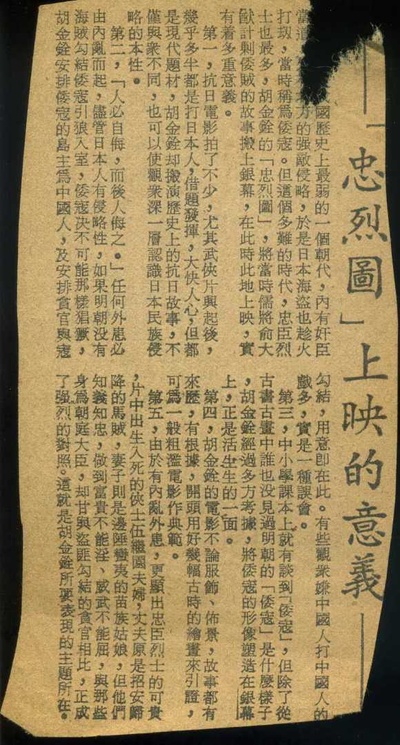 「忠烈圖」上映的意義
國歷史上最弱的一個朝代，內有奸臣
當道，方的強敵侵略，於是日本海盜也趁火
打刼，當時稱爲倭寇。但這個多難的時代，忠臣烈
士也最多，胡金銓的「忠烈圖」，將當時儒將俞大
猷計剿倭賊的故事搬上銀幕，在此時此地上映，實
有着多重意義。
第一，抗日電影拍了不少，尤其武俠片興起後，
幾乎多半都是打日本人，借題發揮，大快人心，但都
是現代題材，胡金銓却搬演歷史上的抗日故事，不
僅與衆不同，也可以使觀衆深一層認識日本民族侵
略的本性。
第二，「人必自侮，而後人侮之。」任何外患必
由內亂而起，儘管日本人有侵略性，如果明朝沒有
海賊勾結倭寇引狼入室，倭寇決不可能那樣猖獗，
胡金銓安排倭寇的島主爲中國人，及安排貪官與寇
勾結，用意卽在此。有些觀衆嫌中國人打中國人的
戲多，實是一種誤會。
第三，中小學課本上就有談到「倭寇」，但除了從
古書古畫中誰也沒見過明朝的「倭寇」是什麼樣子
，胡金銓經過多方考據，將倭寇的形像塑造在銀幕
上，正是活生生的一面。
第四，胡金銓的電影不論服飾、佈景，故事都有
來歷，有根據，開頭用好幾幅古時的繪畫來引證，
可爲一般粗濫電影作典範。
第五，由於有內亂外患，更顯出忠臣烈士的可貴
，片中出生入死的俠士伍繼園夫婦，丈夫原是招安歸
降的馬賊，妻子則是邊陲蠻夷的苗族姑娘，但他們
知義知忠，做到富貴不能淫、威武不能屈，與那些
身爲朝庭大臣，却甘與盜匪勾結的貪官相比，正成
了強烈的對照。這就是胡金銓所要表現的主題所在。